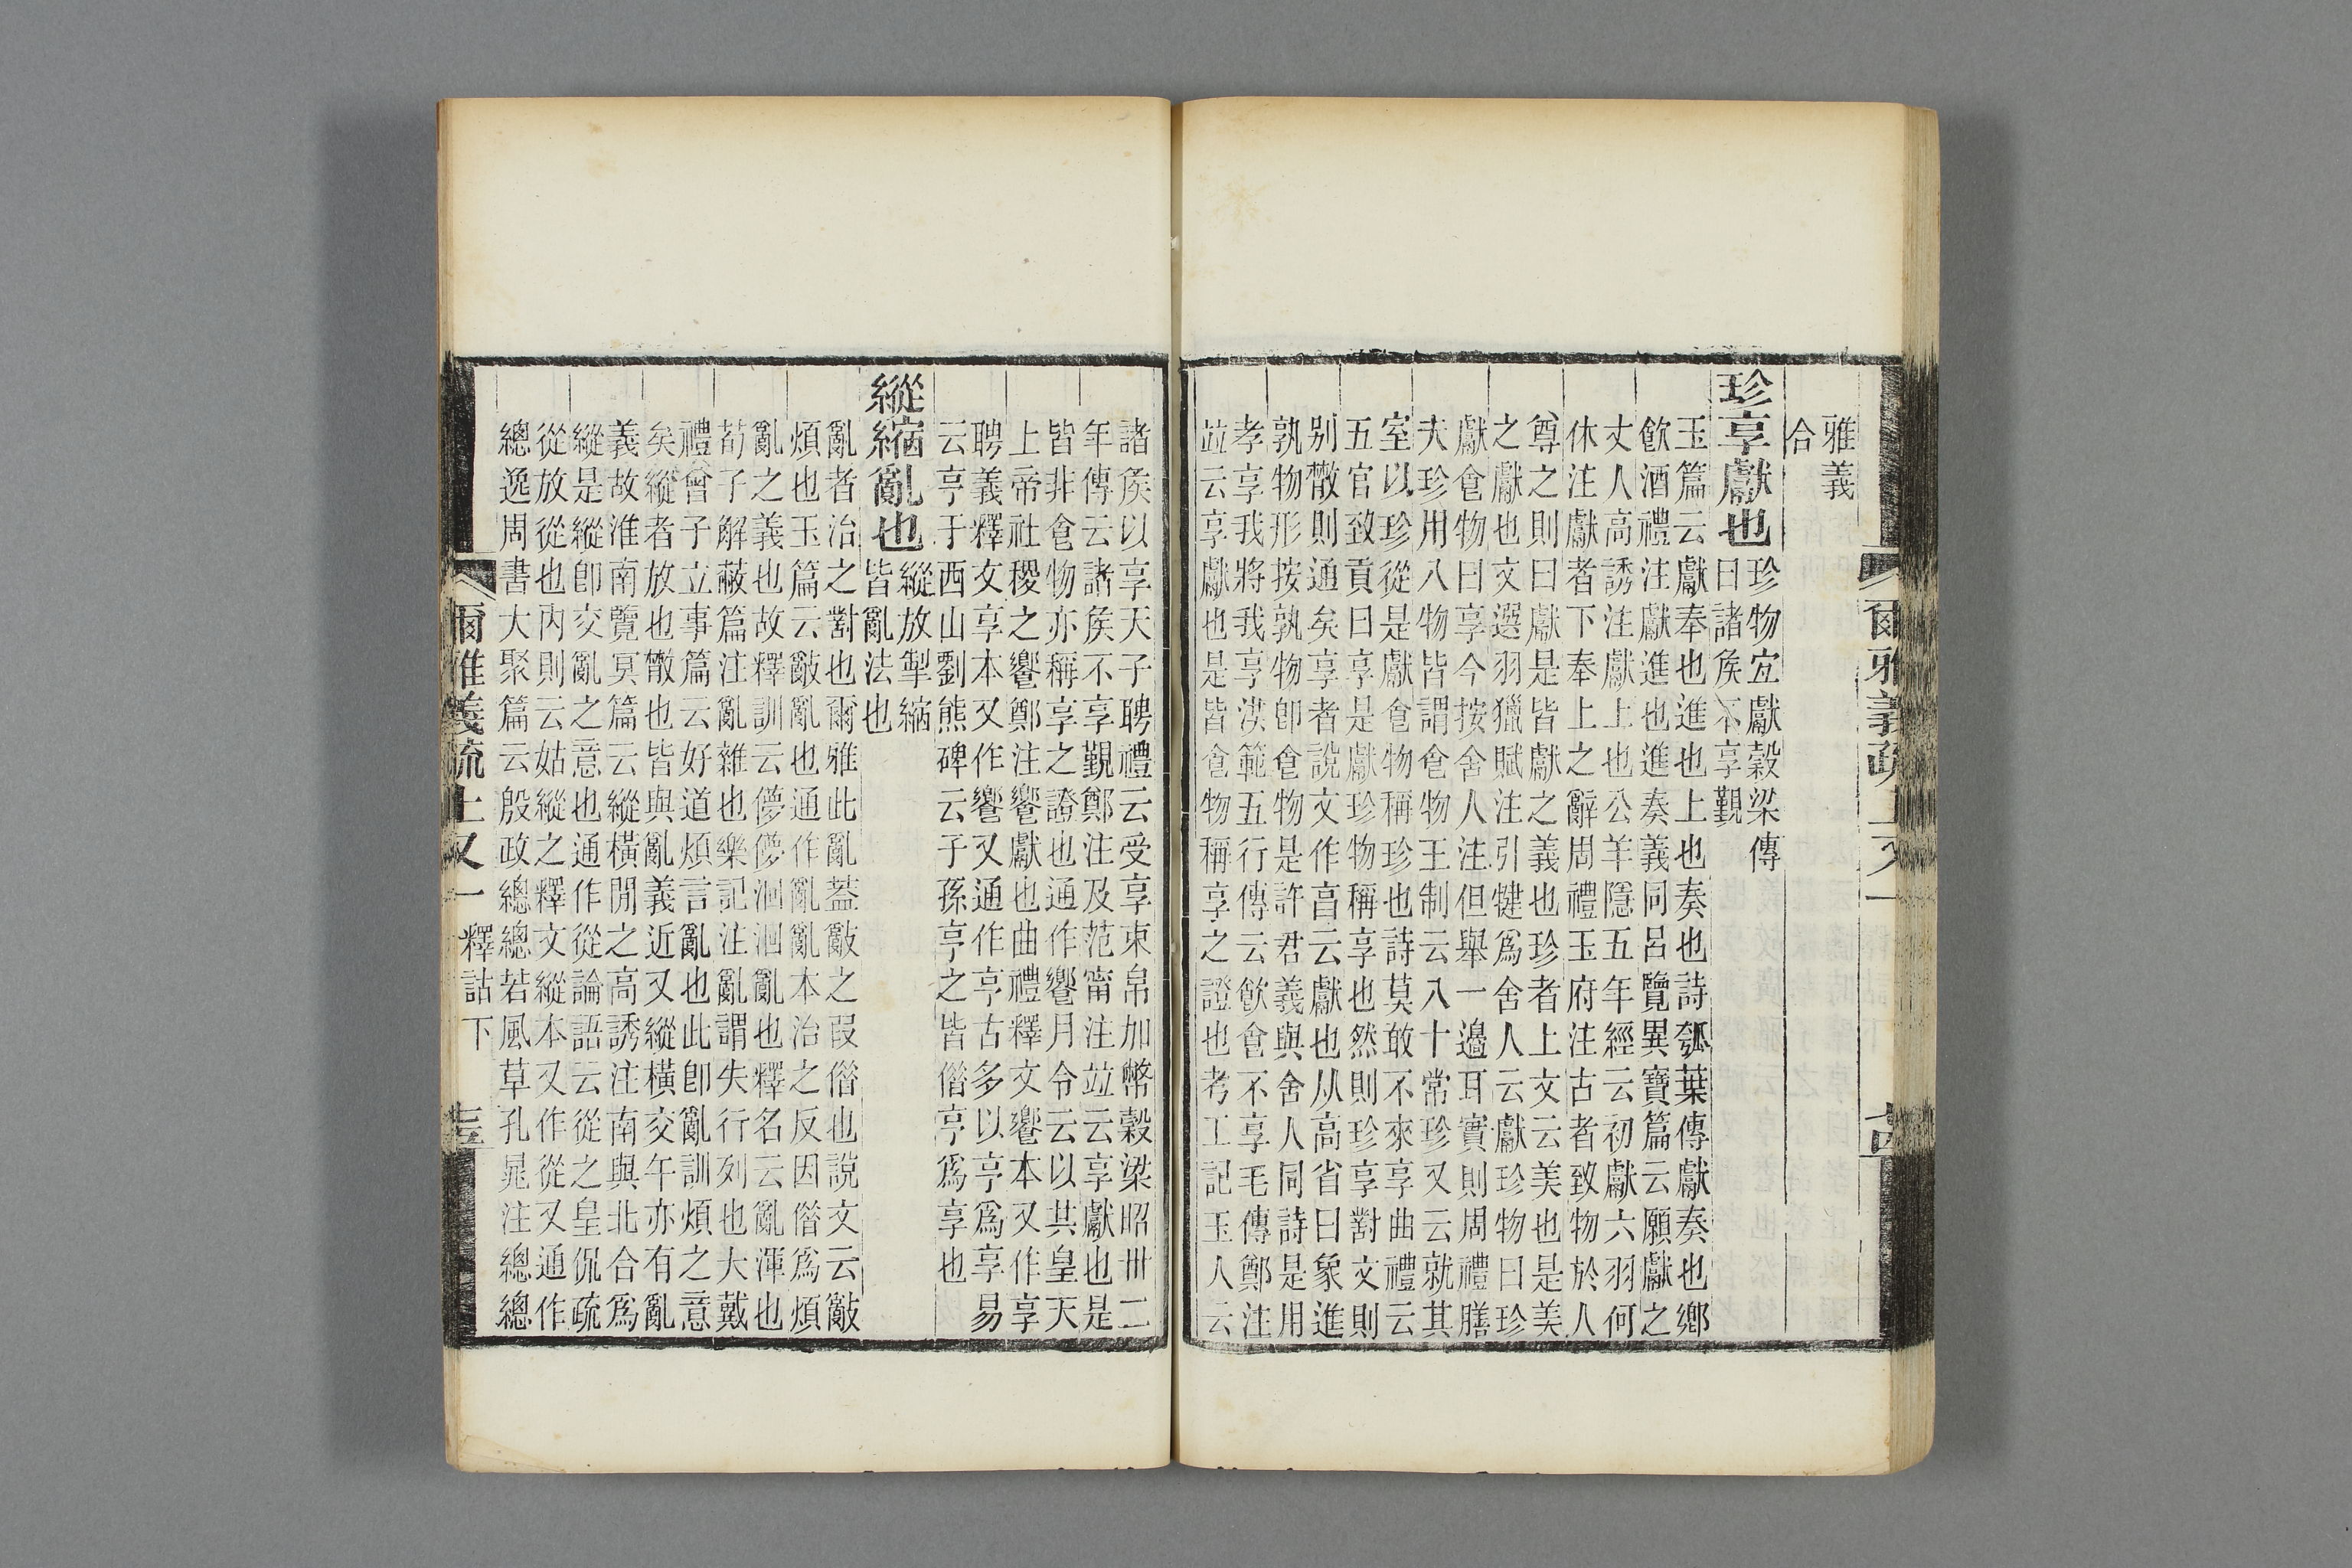 爾雅義疏上又一
雅義
合
珍享獻也
珍物宜獻穀梁傳
曰諸矦不享覲
玉篇云獻奉也進也上也奏也詩瓠葉傳獻奏也鄉
飮酒禮注獻進也進奏義同呂覽異寶篇云願獻之
丈人高誘注獻上也公羊隱五年經云初獻六羽何
休注獻者下奉上之辭周禮玉府注古者致物於人
尊之則曰獻是皆獻之義也珍者上文云美也是美
之獻也文選羽獵賦注引犍爲舍人云獻珍物曰珍
獻食物曰享今按舍人注但舉一邉耳實則周禮膳
夫珍用八物皆謂食物王制云八十常珍又云就其
室以珍從是獻食物稱珍也詩莫敢不來享曲禮云
五官致貢曰享是獻珍物稱享也然則珍享對文則
别散則通矣享者說文作亯云獻也从高省曰象進
孰物形按孰物卽食物是許君義與舍人同詩是用
孝享我將我享洪範五行傳云飮食不享毛傳鄭注
竝云享獻也是皆食物稱享之證也考工記玉人云
諸矦以享天子聘禮云受享束帛加幣穀梁昭卅二
年傳云諸矦不享覲鄭注及范甯注竝云享獻也是
皆非食物亦稱享之證也通作饗月令云以共皇天
上帝社稷之饗鄭注饗獻也曲禮釋文饗本又作享
聘義釋文享本又作饗又通作亨古多以亨爲享易
云亨于西山劉熊碑云子孫亨之皆偕亨爲享也
縱縮亂也
縱放掣縮
皆亂法也
亂者治之對也爾雅此亂葢敽之叚偕也說文云敽
煩也玉篇云敽亂也通作亂亂本治之反因偕爲煩
亂之義也故釋訓云儚儚洄洄亂也釋名云亂渾也
荀子解蔽篇注亂雜也樂記注亂謂失行列也大戴
禮曾子立事篇云好道煩言亂也此卽亂訓煩之意
矣縱者放也散也皆與亂義近又縱橫交午亦有亂
義故淮南覽冥篇云縱橫閒之高誘注南與北合爲
縱是縱卽交亂之意也通作從論語云從之皇侃疏
從放從也內則云姑縱之釋文縱本又作從又通作
總逸周書大聚篇云殷政總總若風草孔晁注總總
爾雅義疏上又一 釋詁下